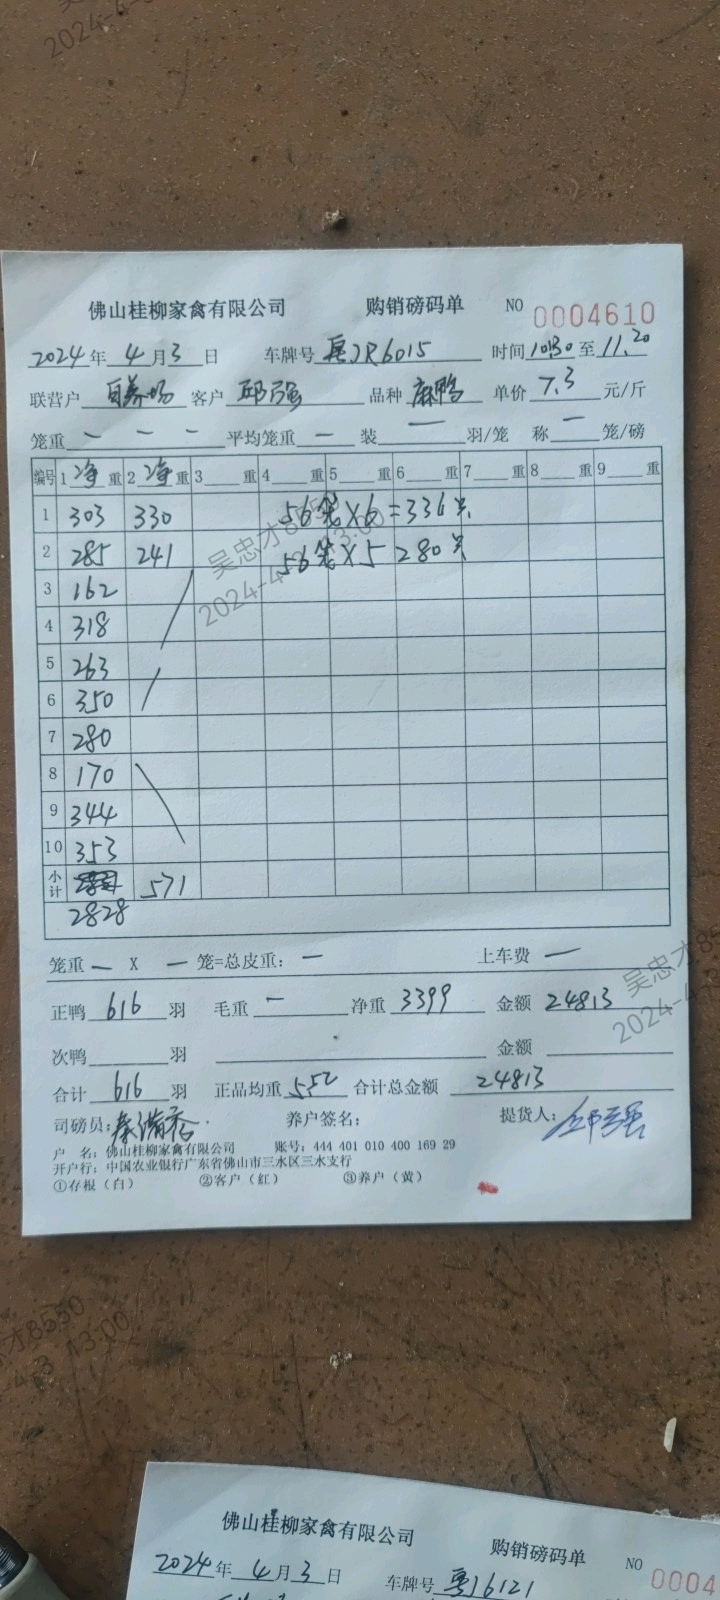 佛山桂柳家禽有限公司 购销磅码单 NO 0004610
2024年4月3日 车牌号 粤JR6015 时间10:30至11.20
联营户 自养场 客户 邱强 品种 麻鸭 单价 7.3 元/斤
笼重 — — — 平均笼重 — 装 — 羽/笼 称 — 笼/磅
编号 1 净 重 2 净 重 3 重 4 重 5 重 6 重 7 重 8 重 9 重
1 303 330 56笼×6=336只
2 285 241 56笼×5 280只
3 162
4 318
5 263
6 350
7 280
8 170
9 344
10 353
小计 571
2828
笼重 — X — 笼=总皮重: — 上车费 —
正鸭 616 羽 毛重 — 净重 3399 金额 24813
次鸭 羽 金额
合计 616 羽 正品均重 5.52 合计总金额 24813
司磅员: 养户签名: 提货人: 邱强
户 名: 佛山桂柳家禽有限公司 账号: 444 401 010 400 169 29
开户行: 中国农业银行广东省佛山市三水区三水支行
①存根(白) ②客户(红) ③养户(黄)
吴忠才8550
佛山桂柳家禽有限公司 购销磅码单 NO 0004
2024年4月3日 车牌号 粤J6121